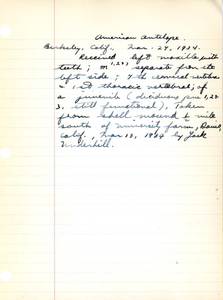 American Antelope.
Berkeley, Calif., Mar. 27, 1924.
Received left maxilla with
teeth; m 1,2,3, separate from its
left side; 7th cervical vertebra
+ 1st thoracic vertebra; of
a juvenile (deciduous pm 1, 2 +
3, still functional), Taken
from shell mound ½ mile
south of University farm, Davis,
Calif., Mar 13, 1924 by Jack
Underhill.